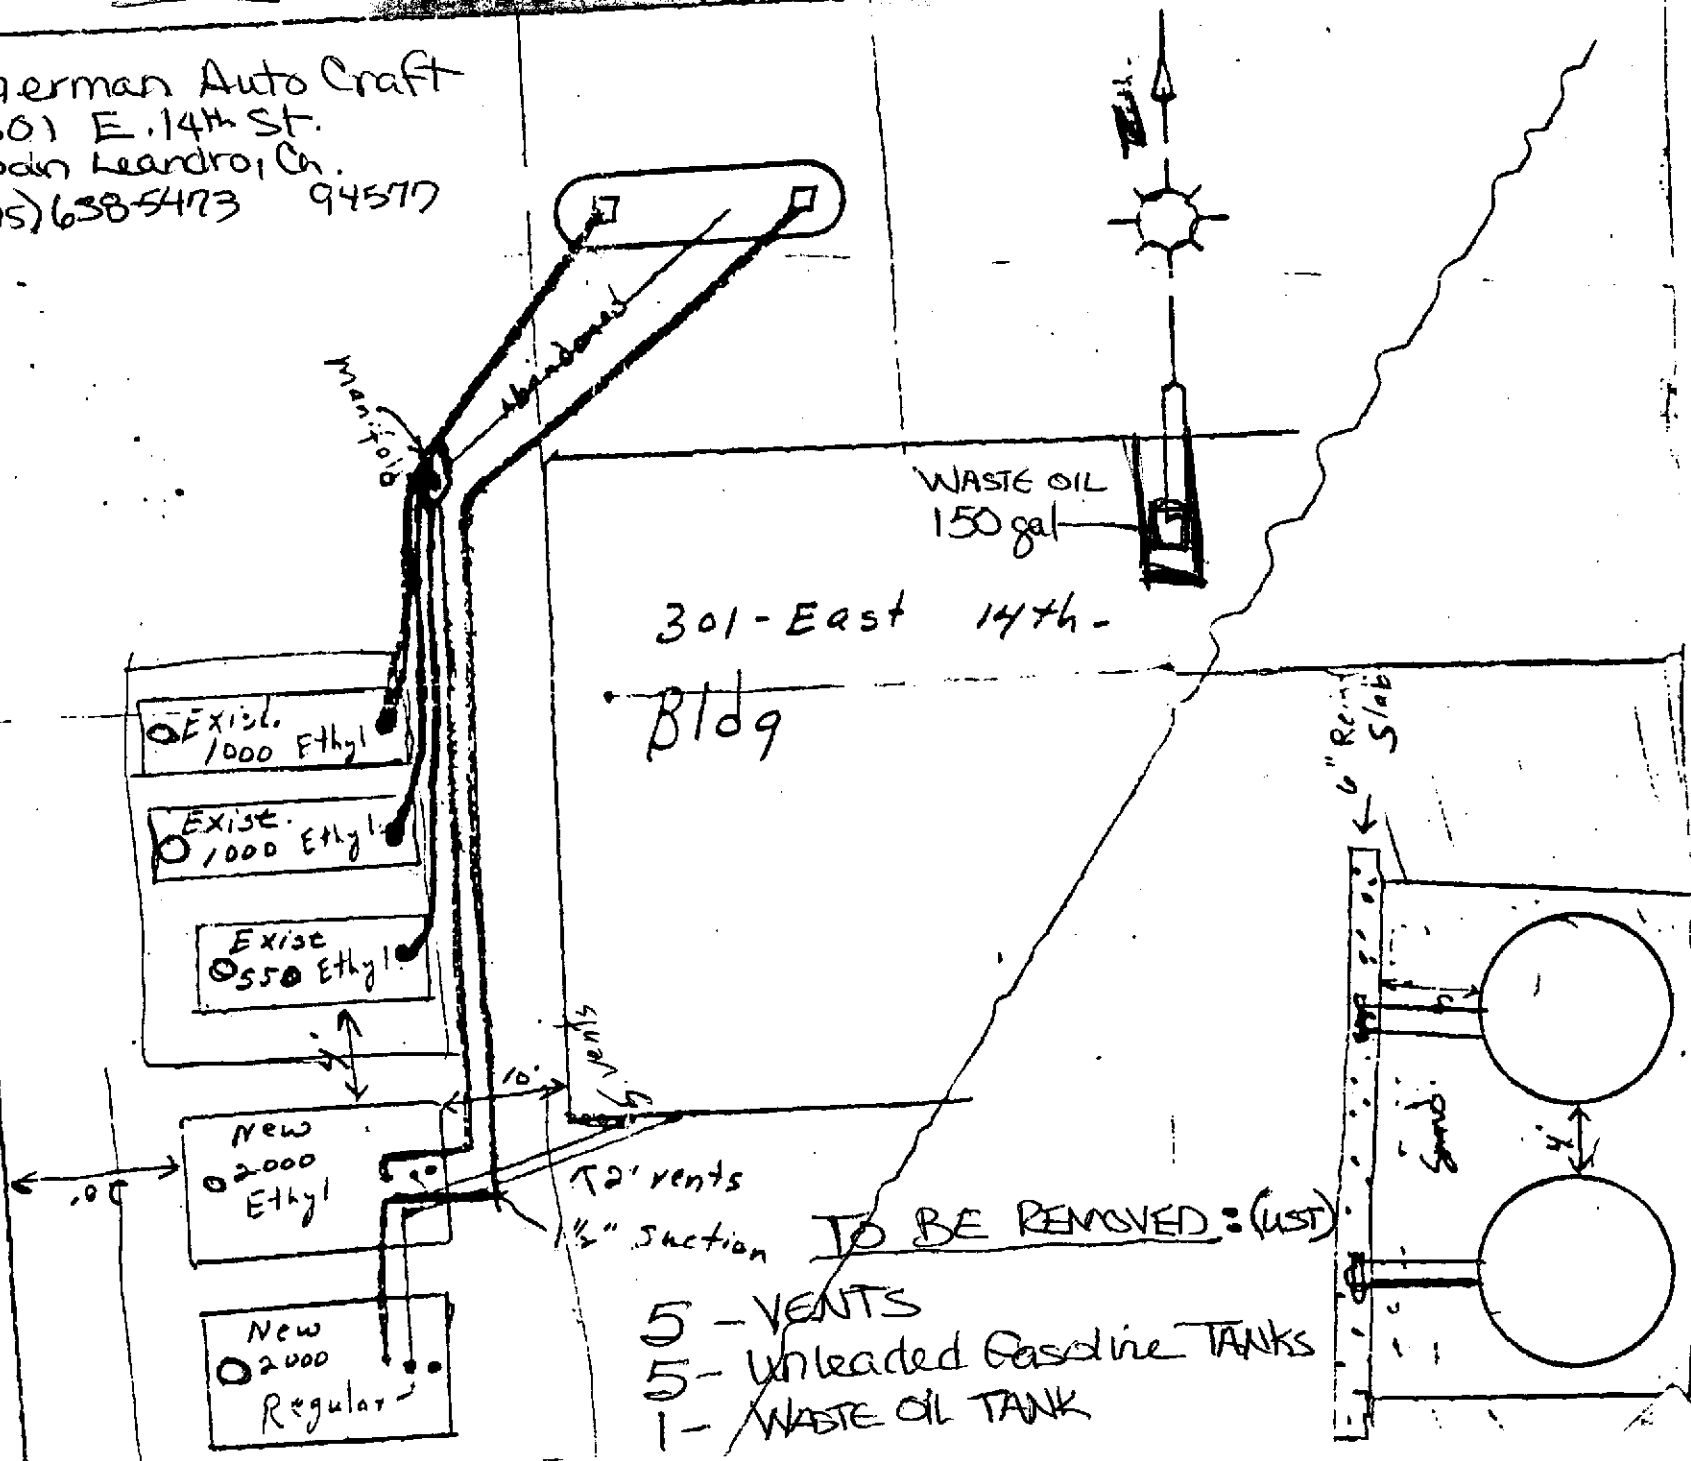 german Auto Craft
301 E. 14th St.
San Leandro, Ca.
15) 638-5473 94577
Manifold
Abandoned
WASTE OIL
150 gal
301 - East 14th -
Bldg
Exist.
1000 Ethyl
Exist.
1000 Ethyl
Exist
550 Ethyl
4'
10'
Vents
New
2000
Ethyl
2' vents
1 1/2" Suction
New
2000
Regular
TO BE REMOVED : (UST)
5 - VENTS
5 - Unleaded Gasoline TANKS
1 - WASTE OIL TANK
6" Rein
Slab
Sand
4'